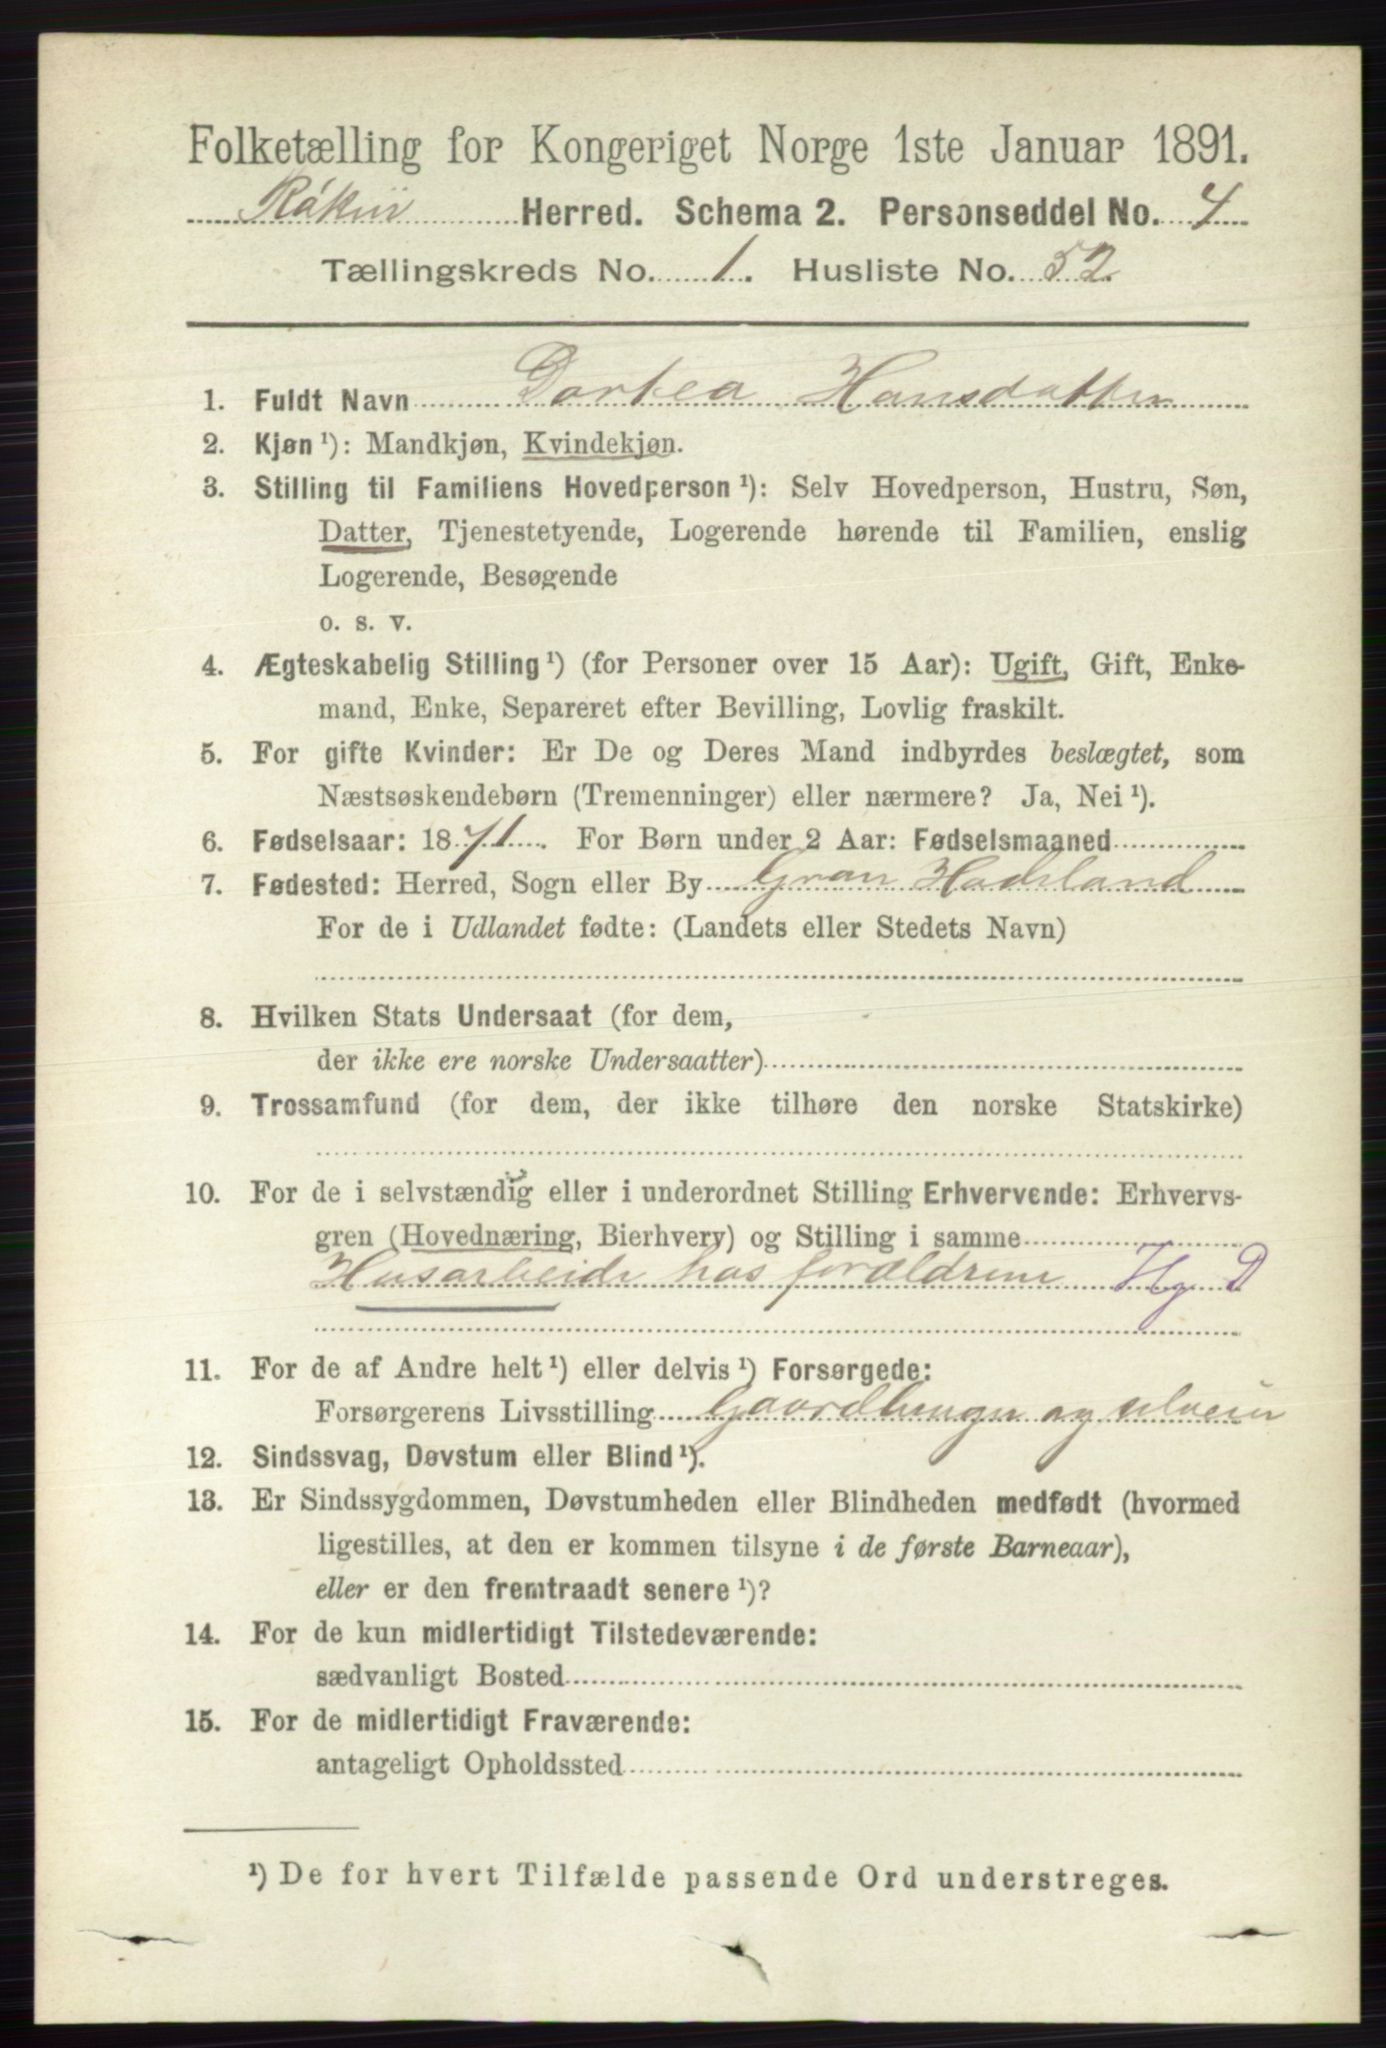 Folketælling for Kongeriget Norge 1ste Januar 1891.
Herred. Schema 2. Personseddel No. 4
Tællingskreds No. 1. Husliste No. 52.
1. Fuldt Navn Dortea Hansdatter
2. Kjøn ¹): Mandkjøn, Kvindekjøn.
3. Stilling til Familiens Hovedperson ¹): Selv Hovedperson, Hustru, Søn,
Datter, Tjenestetyende, Logerende hørende til Familien, enslig
Logerende, Besøgende
o. s. v.
4. Ægteskabelig Stilling ¹) (for Personer over 15 Aar): Ugift, Gift, Enke-
mand, Enke, Separeret efter Bevilling, Lovlig fraskilt.
5. For gifte Kvinder: Er De og Deres Mand indbyrdes beslægtet, som
Næstsøskendebørn (Tremenninger) eller nærmere? Ja, Nei ¹).
6. Fødselsaar: 1871. For Børn under 2 Aar: Fødselsmaaned
7. Fødested: Herred, Sogn eller By Gran Hadeland
For de i Udlandet fødte: (Landets eller Stedets Navn)
8. Hvilken Stats Undersaat (for dem,
der ikke ere norske Undersaatter)
9. Trossamfund (for dem, der ikke tilhøre den norske Statskirke)
10. For de i selvstændig eller i underordnet Stilling Erhvervende: Erhvervs-
gren (Hovednæring, Bierhverv) og Stilling i samme
Husarbeide hos forældrene Hg D
11. For de af Andre helt ¹) eller delvis ¹) Forsørgede:
Forsørgerens Livsstilling Gaardbruger og selveier
12. Sindssvag, Døvstum eller Blind ¹).
13. Er Sindssygdommen, Døvstumheden eller Blindheden medfødt (hvormed
ligestilles, at den er kommen tilsyne i de første Barneaar),
eller er den fremtraadt senere ¹)?
14. For de kun midlertidigt Tilstedeværende:
sædvanligt Bosted
15. For de midlertidigt Fraværende:
antageligt Opholdssted
¹) De for hvert Tilfælde passende Ord understreges.